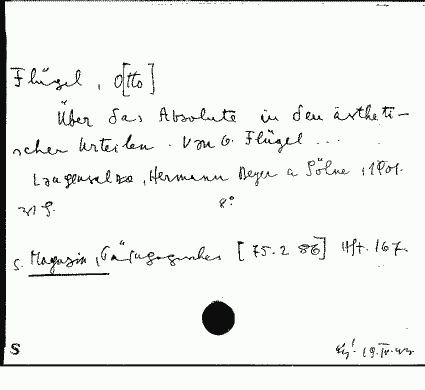 Flügel, O[tto]
Über das Absolute in den ästheti-
schen Urteilen. Von O. Flügel ...
Langensalza, Hermann Beyer u Söhne, 1901.
31 S. 8°
S. Magazin, Pädagogisches [75.2 86] Hft. 167.
S